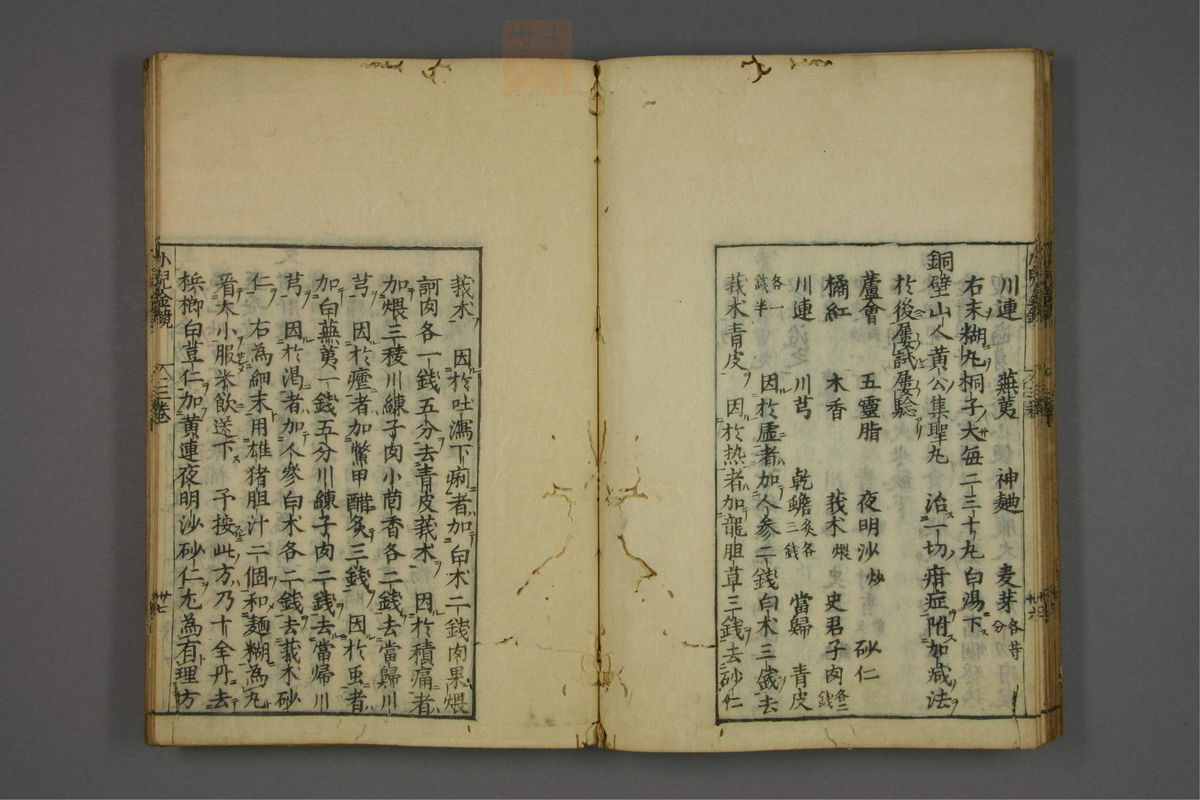 川連　蕪荑　神麯　麦芽各等分
右末糊丸桐子大毎二三十丸白湯下
銅壁山人黄公集聖丸　治一切疳症附加减法
於後屡試屡驗
蘆會　五靈脂　夜明沙炒　砂仁
橘紅　木香　莪朮煨　史君子肉各二錢
川連　川芎　乾蟾炙各三錢　當歸　青皮
各一錢半　因於虛者加人参二錢白朮三錢去
莪朮青皮　因於热者加龍胆草三錢去砂仁
莪朮　因於吐瀉下痢者加白朮二錢肉果煨
訶肉各一錢五分去青皮莪朮　因於積痛者
加煨三稜川練子肉小茴香各二錢去當歸川
芎　因於瘧者加鱉甲醋炙三錢　因於虫者
加白蕪荑一錢五分川練子肉二錢去當帰川
芎　因於渇者加人參白朮各二錢去莪朮砂
仁　右為細末用雄猪胆汁二個和麵糊為丸
看大小服米飲送下　予按此方乃十全丹去
梹榔白荳仁加黄連夜明沙砂仁尤為有理方
小兒金鏡　三巻　卅七